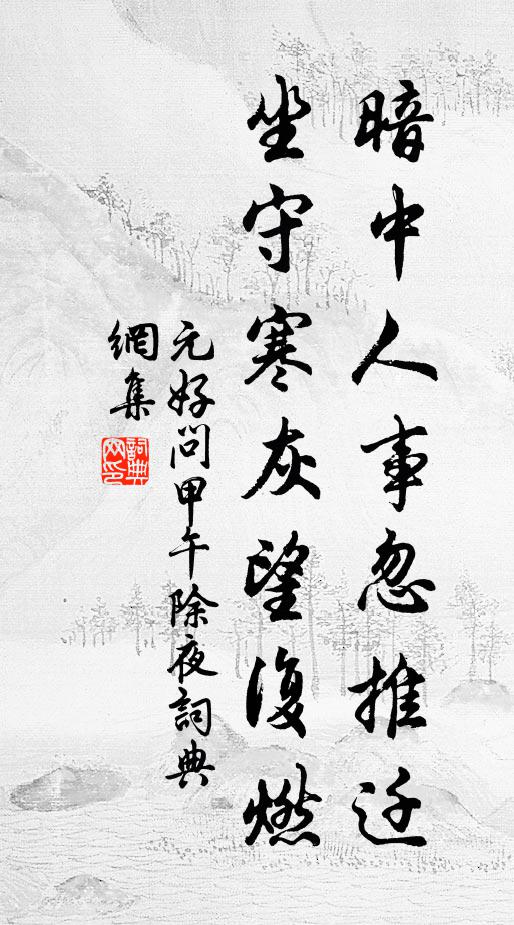 暗中人事忽推迁
坐守寒灰望復燃
元好問甲午除夜詞典
網集
詞典
网印